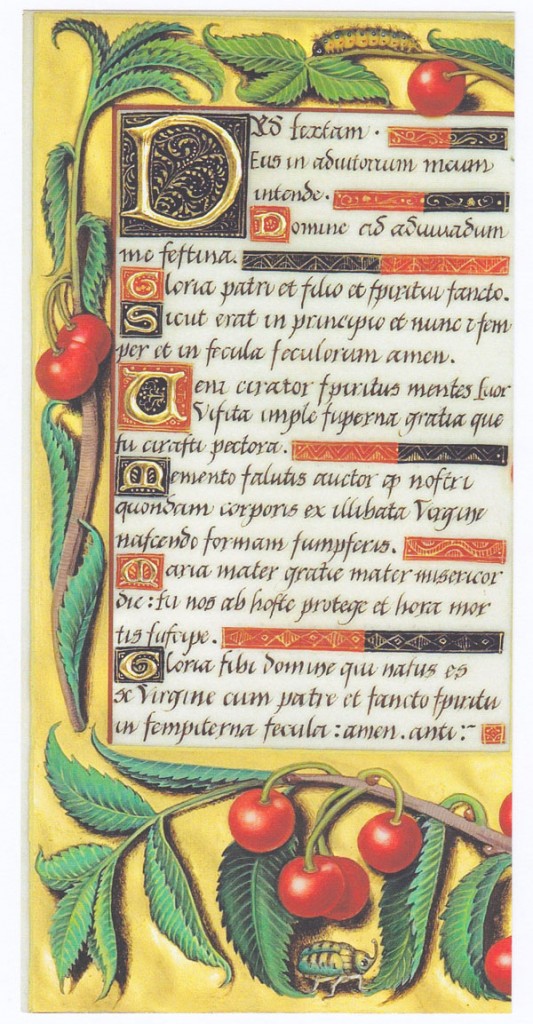 Ad ſextam .
Deus in adiutorium meum
intende .
Domine ad adiuuadum
me feſtina .
Gloria patri et filio et ſpiritui ſancto .
Sicut erat in principio et nunc ꝛ ſem
per et in ſecula ſeculorum amen .
Veni creator ſpiritus mentes tuor
Viſita imple ſuperna gratia que
tu creaſti pectora .
Memento ſalutis auctor noſtri
quondam corporis ex illibata Virgine
naſcendo formam ſumpſeris .
Maria mater gratie mater miſericor
die : tu nos ab hoſte protege et hora mor
tis ſuſcipe .
Gloria tibi domine qui natus es
de Virgine cum patre et ſancto ſpiritu
in ſempiterna ſecula : amen . anti :